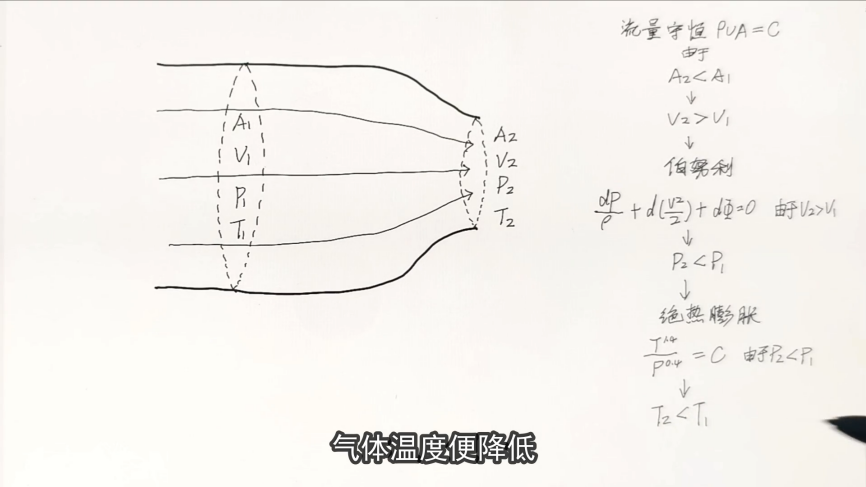 A₁
V₁
P₁
T₁
A₂
V₂
P₂
T₂
流量守恒 ρVA=C
由于
A₂<A₁
↓
V₂>V₁
↓
伯努利
dP/ρ + d(V²/2) + dΦ=0 由于V₂>V₁
↓
P₂<P₁
↓
绝热膨胀
T^1.4/P^0.4 = C 由于P₂<P₁
↓
T₂<T₁
气体温度便降低